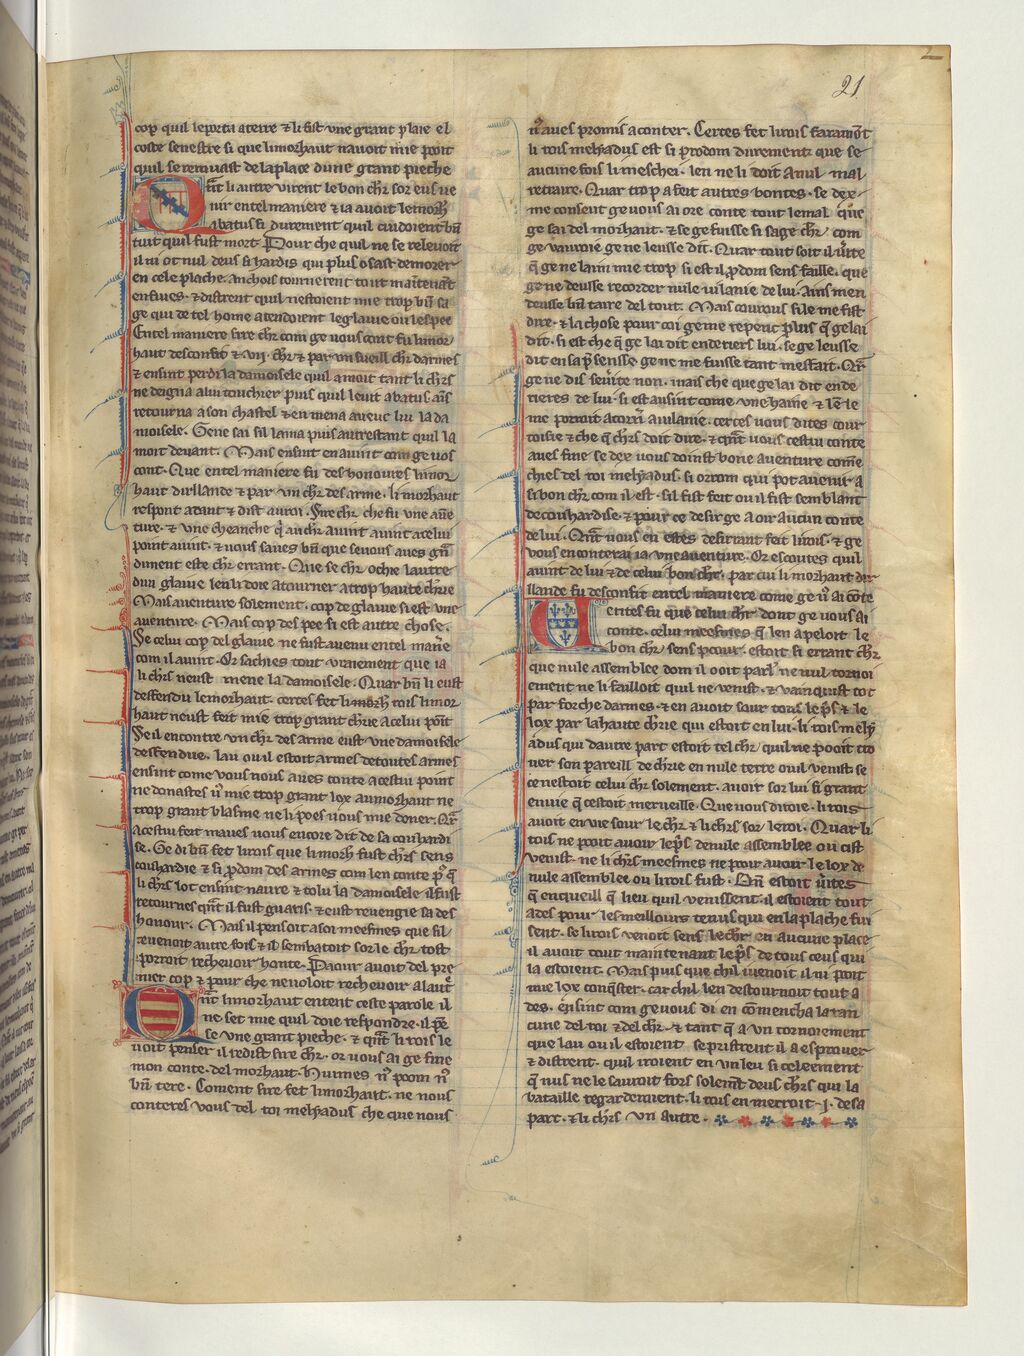 21
cop quil leporta aterre ⁊ li fist vne grant plaie el
coste senestre si que li morhaut nauoit mie pooir
quil se remuast de la place dune grant pieche
Qāt li autre virent le bon chr̄ sor eus ue
nir entel maniere ⁊ ia auoit le morh̄
abatus si durement quil cuidoient bn̄
tuit quil fust mort. Pour che quil ne se releuoit
il ni ot nul deus si hardis qui plus osast demorer
en cele plache. anchois tournerent tout maitenāt
enfuies. ⁊ distrent quil nestoient mie trop bn̄ sa
ge qui de tel home atendoient le glaiue ou lespee
Entel maniere sire chr̄ com ge uous cont fu li mor
haut desconfit ⁊ .vii. chr̄ ⁊ par vn sueill chr̄ darmes
⁊ ensint perdi la damoisele quil amoit tant li chr̄s
ne deigna a lui touchier puis quil leuit abatus. ains
retourna a son chastel ⁊ en mena auenc lui la da
moisele. Ge ne sai sil lama puis autrestant quil la
moit deuant. Mais ensint en auint com ge uos
cont. Que entel maniere fu des honoures li mor
haut dirllande ⁊ par vn chr̄ des arme. li morhaut
respont atant ⁊ dist auroi. Sire chr̄ che fu vne auē
ture. ⁊ vne cheanche q̄ auchr̄ auint auint acelui
point auint. ⁊ uous saues bn̄ que se uous aues grn̄
diment este chr̄ errant. Que se chr̄ ochie lautre
dun glaiue len li doie atourner a trop haute chr̄ie
Mais auenture solement. cop de glaiue si est vne
auenture. Mais cop des pee si est autre chose.
Se celui cop del glaiue ne fust auenu entel manr̄e
com il auint. Or sachies tout vraiement que ia
li chr̄s neust mene la damoisele. Quar bn̄ li eust
desfendu le morhaut. certes fet li morh̄ rois li mor
haut neust feit mie trop grant chr̄ie a celui point
Se il encontre vn chr̄ des arme eust vne damoisele
desfendue. lau ou il estoit armes de toutes armes
ensint come vous nous aues conte a cestui point
ne donastes ur̄ mie trop grant lox au morhaut ne
trop grant blasme ne li poes uous mie doner. Qr̄
a cestui feit maues uous encore dit de sa couhardi
se. Ge di bn̄ fet li rois que li morh̄ fust chr̄s sens
couhardie ⁊ si p̄dom des armes com len conte p̄r q̄
li chr̄s lot ensint naure ⁊ tolu la damoisele il fust
retournes qn̄t il fust guaris. ⁊ eust reuengie sa des
honour. Mais il pensoit a soi meesmes que sil
reuenoit autre fois ⁊ il sembatoit sor le chr̄ tost
porroit recheuoir honte. Paour auoit del pre
mier cop ⁊ pour che ne uoloit recheuoir alautr̄
Qn̄t li morhaut entent ceste parole il
ne set mie quil doie respondre. il pē
se vne grant pieche. ⁊ qn̄t li rois le
uoit penser il redist sire chr̄. or uous ai ge fine
mon conte. del morhaut. Huimes nr̄ poom nr̄
bn̄ tere. Coment sire fet li morhaut. ne nous
conteres vous del roi melyadus che que nous
nr̄ aues promis a conter. Certes fet li rois faramōt
li rois melyadus est si p̄rodom durement. que se
aucune fois li meschei. len ne li doit a nul mal
retraire. Quar trop a feit autres bontes. se dex
me consent ge uous ai ore conte tout le mal. que
ge sai del morhaut. ⁊ se ge fuisse si sage chr̄. com
ge vauroie ge ne leusse dit. Quar tout soit il ur̄ite
q̄ ge ne laim mie trop si est il p̄dom sens faille. que
ge ne deusse recorder nule uilanie de lui. Ains men
deusse bn̄ taire del tout. Mais courous si le me fist
dire. ⁊ la chose pour coi ge me repent plus q̄ ge lai
dit. si est che q̄ ge lai dit enderiers lui. se ge leusse
dit en sa p̄sense ge ne me fuisse tant mesfait. Qr̄
ge ne dis se ur̄ite non. mais che que ge lai dit ende
rieres de lui. si est ausint come vne haine ⁊ len le
me porroit atorn̄ a uilanie. certes uous dites cour
toisie ⁊ che q̄ chr̄s doit dire. ⁊ qn̄t uous cestui conte
aues fine se dex uous doinst bone auenture come
chies del roi melyadus. si orrom qui pot auenir a
si bon chr̄ com il est. sil fist feit ou il fist semblant
de couhardise. ⁊ pour ce desir ge a oir aucun conte
de lui. Qn̄t uous en estes desirant feit li rois. ⁊ ge
vous en conterai ia vne auenture. Or escoutes quil
auint de lui ⁊ de celui bon chr̄. par cui li morhaut dir
llande fu desconfit entel maniere come ge ur̄ ai cōte
Certes fu que celui chr̄ dont ge uous ai
conte. celui meesmes q̄ len apeloit le
bon chr̄ sens paour. estoit si errant chr̄
que nule assemblee dom il ooit parl̄ ne nul tornoi
ement ne li failloit quil ne venist. ⁊ vainquist tot
par forche darmes. ⁊ en auoit sour tous le p̄s ⁊ le
lox par la haute chr̄ie qui estoit en lui. li rois mely
adus qui dautre part estoit tel chr̄ quil ne pooit tro
uer son pareill de chr̄ie en nule terre ou il venist. se
ce nestoit celui chr̄ solement. auoit sor lui si grant
enuie q̄ cestoit merueille. Que uous diroie. li rois
auoit en vie sour le chr̄ ⁊ li chr̄s sor le roi. Quar li
rois ne poit auoir le p̄s de nule assemblee ou cist
venist. ne li chr̄s meesmes ne poir auoir le lox de
nule assemblee ou li rois fust. Qn̄ estoit ur̄ites
q̄ en queill q̄ lieu quil venissent. il estoient tout
ades pour les meillours tenus qui en la plache fui
sent. se li rois venoit sens le chr̄ en aucune place
il auoit tout maintenant le p̄s de tous ceus qui
la estoient. Mais puis que chil i uenoit il ni poit
mie lox conq̄ster. car chil len destournoit tout a
des. ensint com ge uous di en comencha la ran
cune del roi ⁊ del chr̄. ⁊ tant q̄ a vn tornoiement
que lau ou il estoient se pristrent il a esprouer
⁊ distrent. quil iroient en vn leu si celeement
q̄ nus ne le sauroit fors solemt̄ deus chr̄s qui la
bataille regarderoient. li rois en metroit .i. de sa
part. ⁊ li chr̄s vn autre.